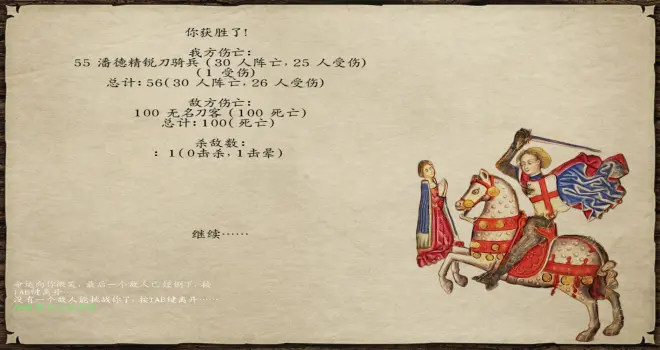 你获胜了!
我方伤亡:
55 潘德精锐刀骑兵 (30 人阵亡, 25 人受伤)
(1 受伤)
总计: 56(30 人阵亡, 26 人受伤)
敌方伤亡:
100 无名刀客 (100 死亡)
总计: 100(死亡)
杀敌数:
: 1(0击杀, 1击晕)
继续……
命运向你微笑, 最后一个敌人已经倒下, 按
TAB键离开
没有一个敌人能挑战你了, 按TAB键离开……